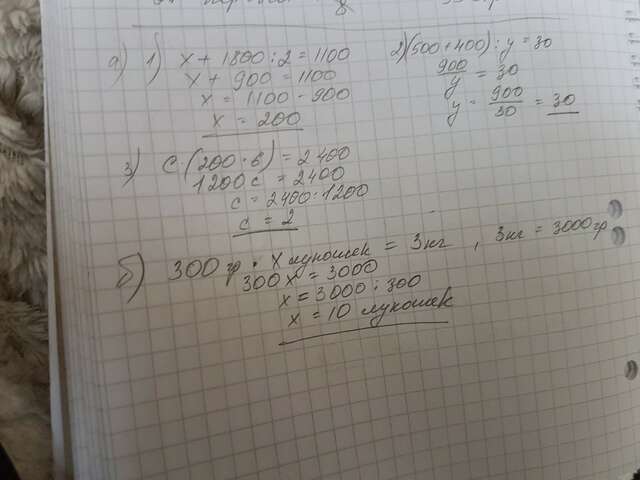 а) 1) x + 1800 : 2 = 1100
x + 900 = 1100
x = 1100 - 900
x = 200
2) (500 + 400) : y = 30
900/y = 30
y = 900/30 = 30
3) c · (200 · 6) = 2400
1200 c = 2400
c = 2400 : 1200
c = 2
б) 300 гр · x лукошек = 3 кг , 3 кг = 3000 гр
300 x = 3000
x = 3000 : 300
x = 10 лукошек